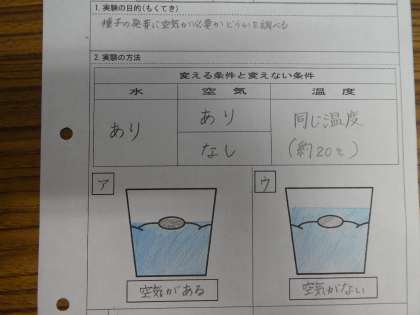 1. 実験の目的(もくてき)
種子の発芽に空気が必要かどうかを調べる
2. 実験の方法
変える条件と変えない条件
水 空気 温度
あり あり 同じ温度
なし (約20℃)
ア ウ
空気がある 空気がない